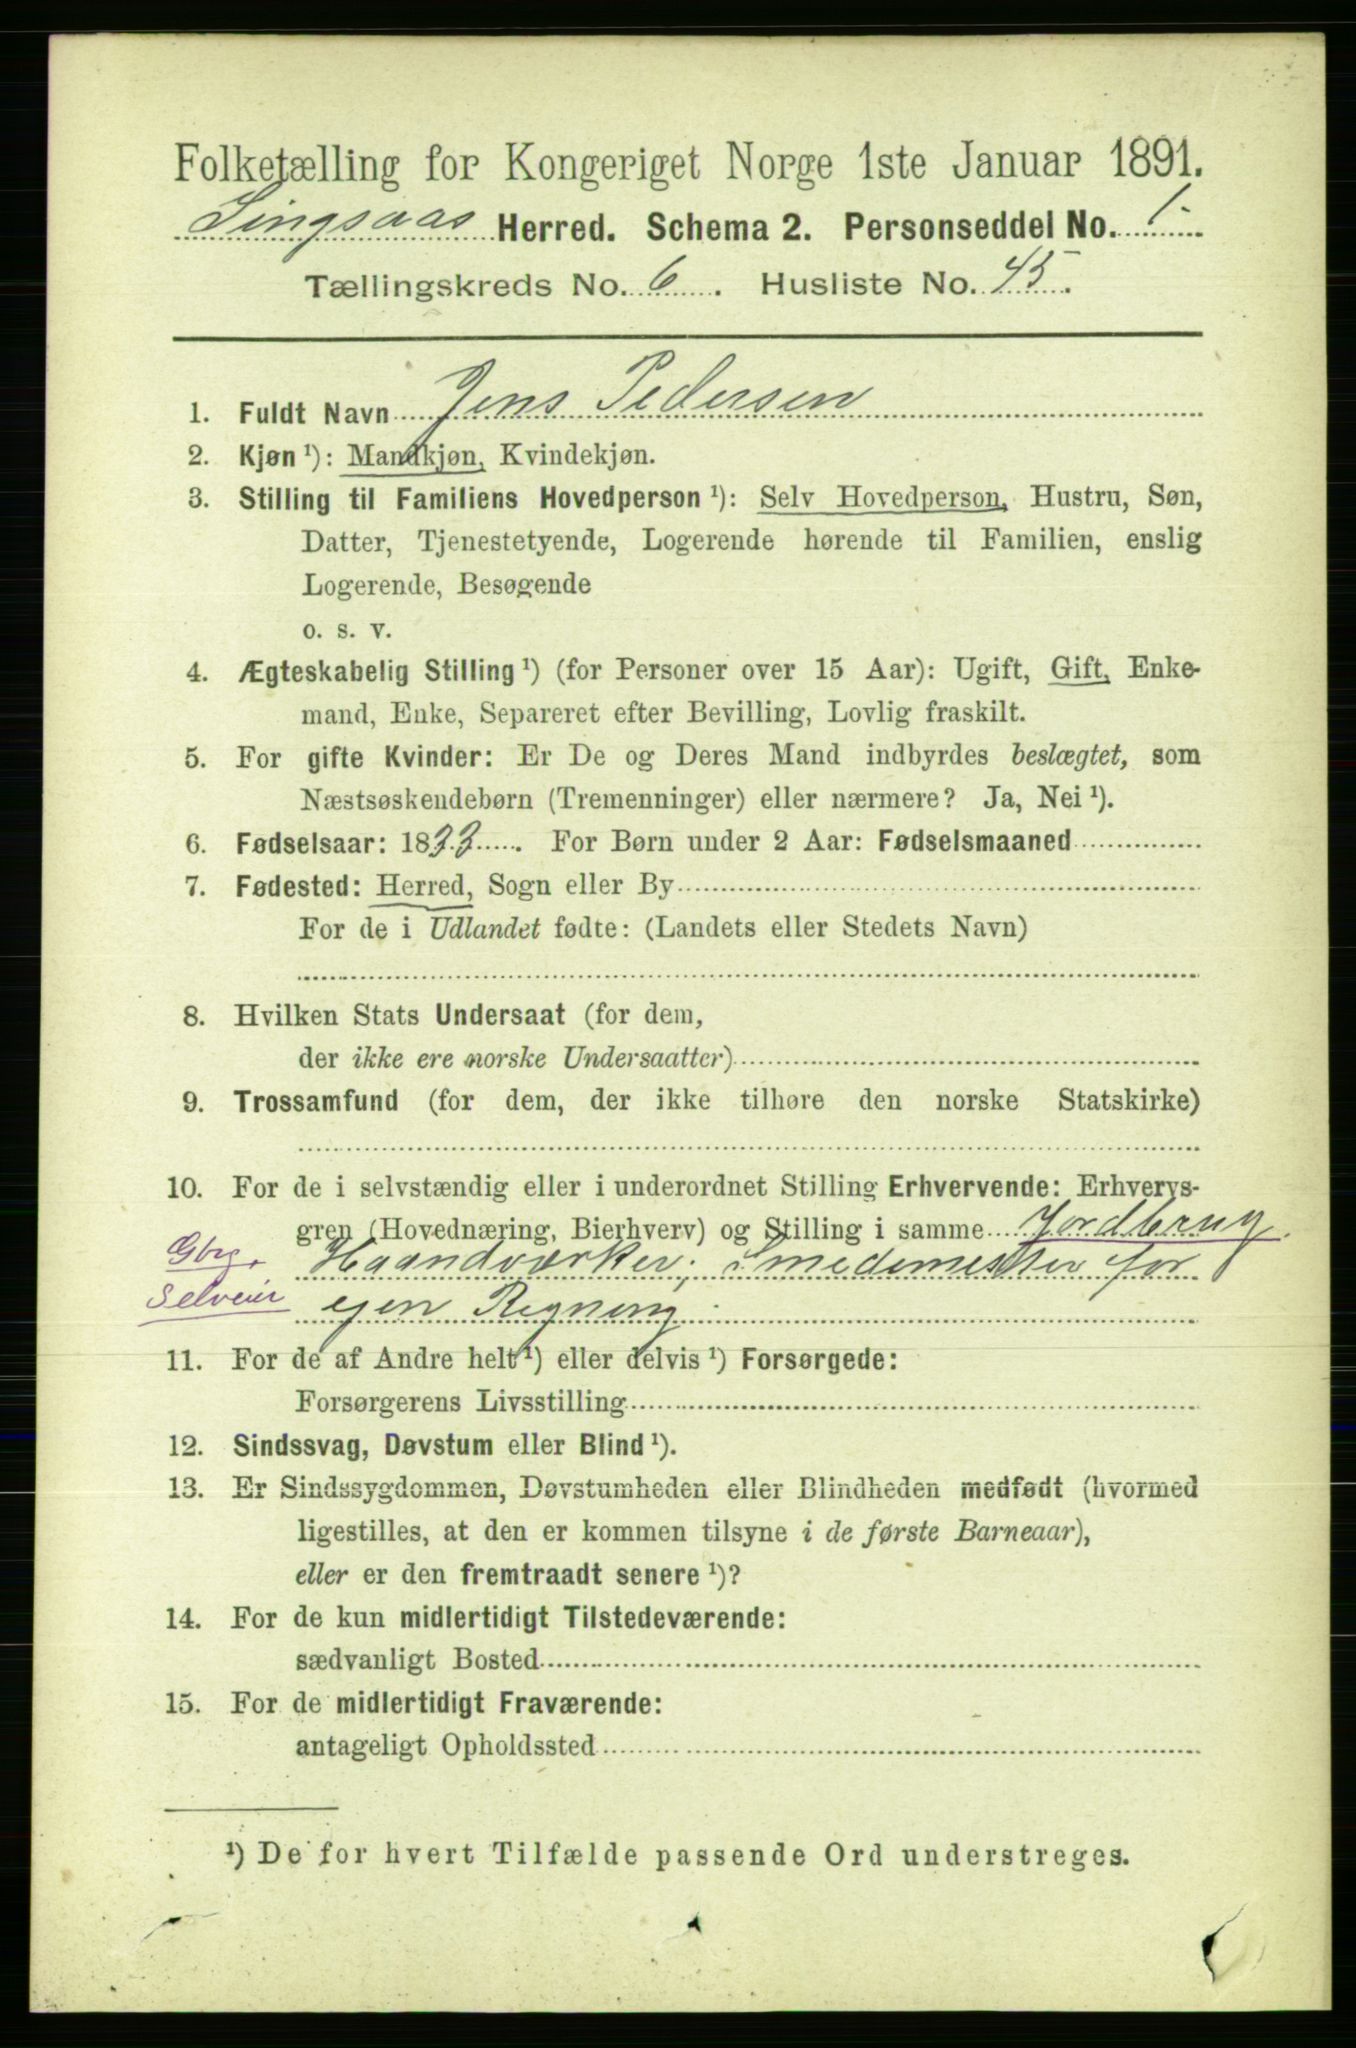 Folketælling for Kongeriget Norge 1ste Januar 1891.
Singsaas Herred. Schema 2. Personseddel No. 1.
Tællingskreds No. 6. Husliste No. 45.
1. Fuldt Navn Jens Pedersen
2. Kjøn ¹): Mandkjøn, Kvindekjøn.
3. Stilling til Familiens Hovedperson ¹): Selv Hovedperson, Hustru, Søn,
Datter, Tjenestetyende, Logerende hørende til Familien, enslig
Logerende, Besøgende
o. s. v.
4. Ægteskabelig Stilling ¹) (for Personer over 15 Aar): Ugift, Gift, Enke-
mand, Enke, Separeret efter Bevilling, Lovlig fraskilt.
5. For gifte Kvinder: Er De og Deres Mand indbyrdes beslægtet, som
Næstsøskendebørn (Tremenninger) eller nærmere? Ja, Nei ¹).
6. Fødselsaar: 1833. For Børn under 2 Aar: Fødselsmaaned
7. Fødested: Herred, Sogn eller By
For de i Udlandet fødte: (Landets eller Stedets Navn)
8. Hvilken Stats Undersaat (for dem,
der ikke ere norske Undersaatter)
9. Trossamfund (for dem, der ikke tilhøre den norske Statskirke)
10. For de i selvstændig eller i underordnet Stilling Erhvervende: Erhvervs-
gren (Hovednæring, Bierhverv) og Stilling i samme Jordbrug.
Gbrg. Haandværker, Smedemester for
Selveier egen Regning.
11. For de af Andre helt ¹) eller delvis ¹) Forsørgede:
Forsørgerens Livsstilling
12. Sindssvag, Døvstum eller Blind ¹).
13. Er Sindssygdommen, Døvstumheden eller Blindheden medfødt (hvormed
ligestilles, at den er kommen tilsyne i de første Barneaar),
eller er den fremtraadt senere ¹)?
14. For de kun midlertidigt Tilstedeværende:
sædvanligt Bosted
15. For de midlertidigt Fraværende:
antageligt Opholdssted
¹) De for hvert Tilfælde passende Ord understreges.